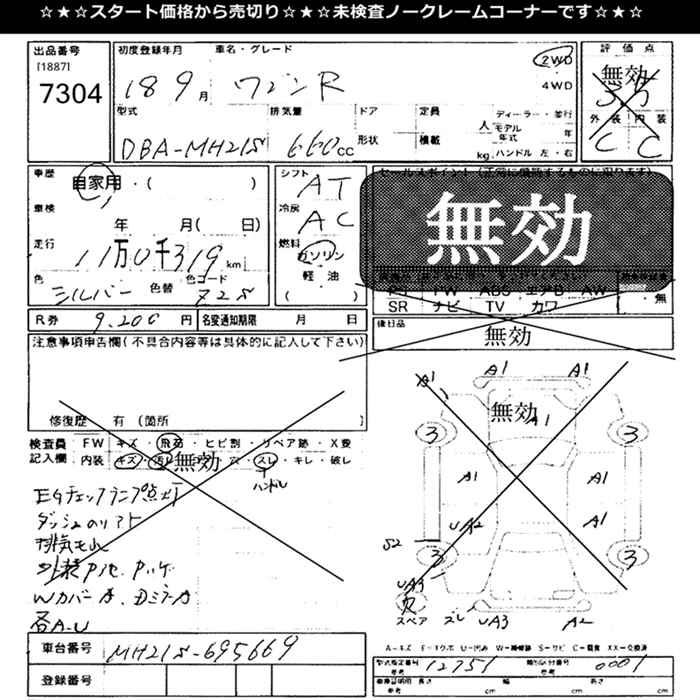 ☆★☆スタート価格から売切り☆★☆未検査ノークレームコーナーです☆★☆
出品番号
[1887]
7304
初度登録年月
車名・グレード
18 9月 ワゴンR
2WD
4WD
評価点
無効
3.5
外装 内装
C C
型式
排気量
ドア
定員
ディーラー・並行
DBA-MH21S
660CC
形状
積載
人
モデル年式
年
kg
ハンドル 左・右
車歴
自家用・( )
車検
年 月( 日)
走行
11万0千319km
色
シルバー
色替
色コード
Z2S
シフト
AT
冷房
AC
燃料
ガソリン
軽油
( )
無効
SR ナビ TV カワ
・無
後日品
無効
R券 9,200円
名変通知期限 月 日
注意事項申告欄(不具合内容等は具体的に記入して下さい)
修復歴 有(箇所 )
検査員記入欄
FW キズ・飛石・ヒビ割・リペア跡・X要
内装 キズ・汚レ・無効・穴・スレ・キレ・破レ
ハンドル
EGチェックランプ点灯
ダッシュのリアト
排気モレ
Wカバーキズ
各A-U
無効
A1
A1
A1
A1
A1
A1
A1
3
3
3
3
UA2
S2
UA3
スペア
ズレ
UA3
A2
車台番号
MH21S-695669
登録番号
A=キズ E=エクボ U=凹み W=補修跡 S=サビ C=腐食 XX=交換済
型式指定番号
参考
12751
類別区分番号
参考
0001
車検証明用
参考
長さ
cm
幅
cm
高さ
cm